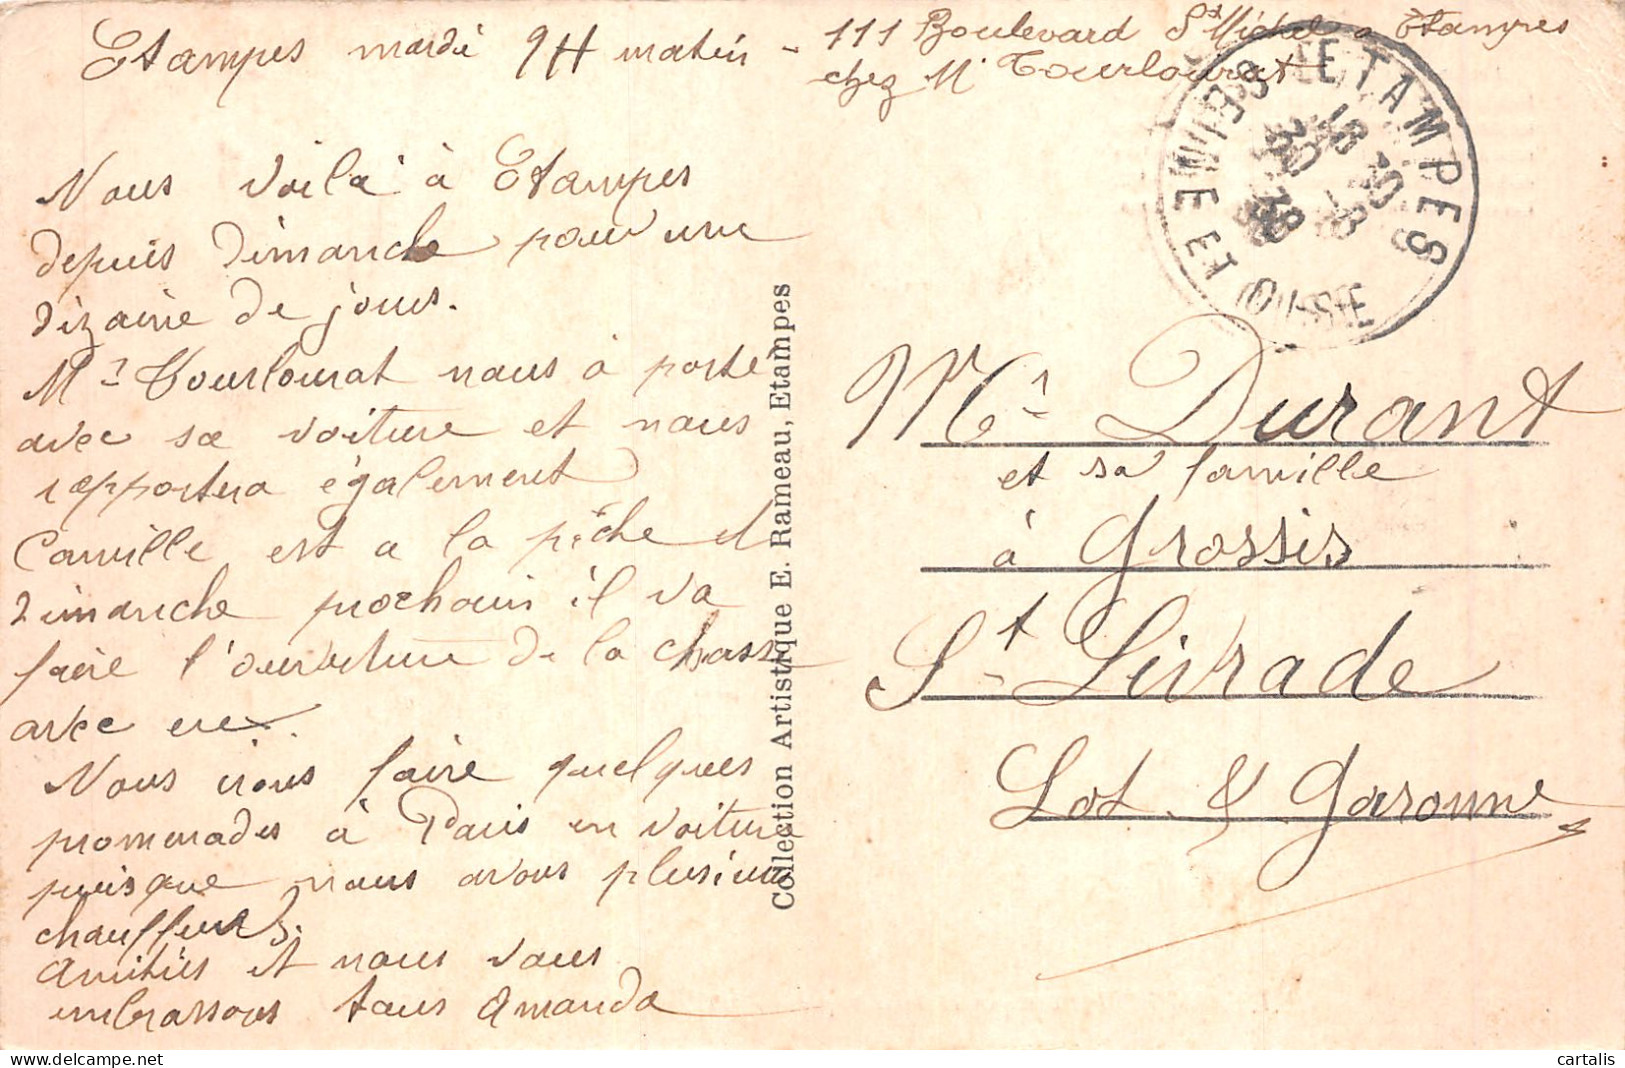 Etampes mardi 9H matin - 111 Boulevard St Michel à Etampes
chez Mr Tourlourat
Nous voila à Etampes
depuis Dimanche pour une
dizaine de jours.
Mr Tourlourat nous à porté
avec sa voiture et nous
rapportera également
Camille est a la pêche et
dimanche prochain il va
faire l'ouverture de la chasse
avec eux.
Nous irons faire quelques
promenades à Paris en voiture
puisque nous avons plusieurs
chauffeurs.
Amitiés et nous vous
embrassons tous Amanda
Collection Artistique E. Rameau, Etampes
ETAMPES
18 30
30 -8
38
SEINE ET OISE
Mr Durant
et sa famille
à Grossis
St Livrade
Lot & Garonne
cartalis